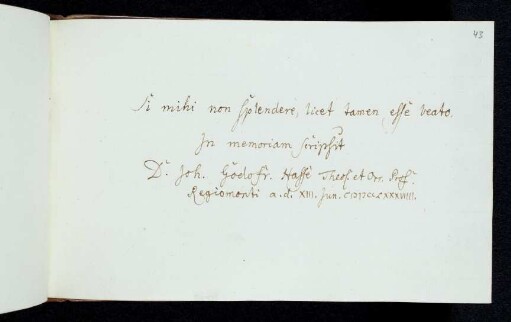 43
Si mihi non splendere, licet tamen esse beato.
In memoriam scripsit
D. Joh. Godofr. Hasse Theol. et Orr. Prof.
Regiomonti a. d. XIII. Jun.